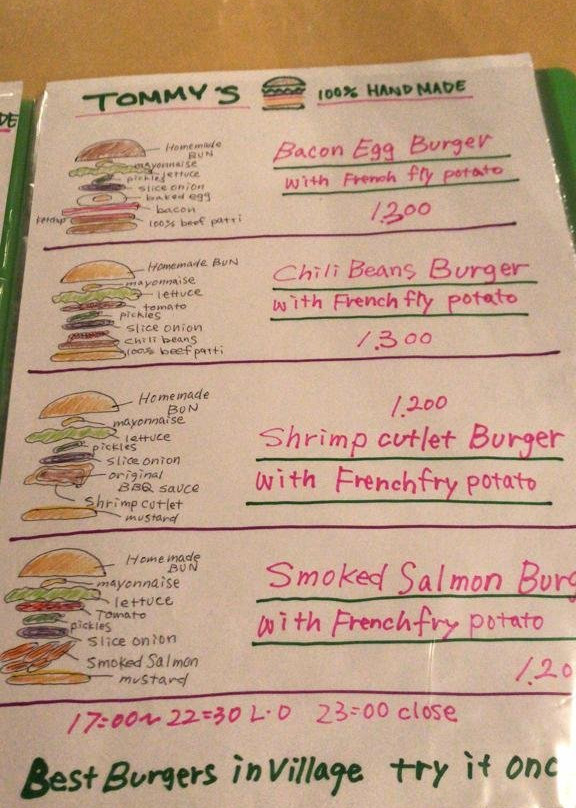 DE
TOMMY'S 100% HAND MADE
Homemade
BUN
mayonnaise
lettuce
pickles
slice onion
baked egg
bacon
Ketchup
100% beef patti
Bacon Egg Burger
with French fly potato
1.300
Homemade BUN
mayonnaise
lettuce
tomato
pickles
slice onion
chili beans
100% beef patti
Chili Beans Burger
with French fly potato
1.300
Homemade
BUN
mayonnaise
lettuce
pickles
slice onion
original
BBQ sauce
Shrimp cutlet
mustard
1.200
Shrimp cutlet Burger
with Frenchfry potato
Homemade
BUN
mayonnaise
lettuce
Tomato
pickles
slice onion
Smoked Salmon
mustard
Smoked Salmon Burg
with Frenchfry potato
1.20
17=00~22=30 L・O 23=00 close
Best Burgers in Village try it onc